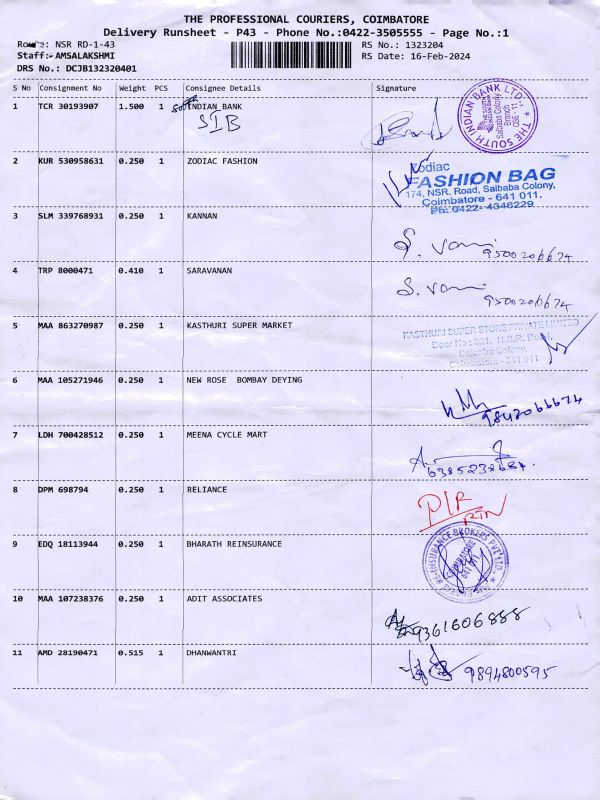 THE PROFESSIONAL COURIERS, COIMBATORE
Delivery Runsheet - P43 - Phone No.:0422-3505555 - Page No.:1
Route: NSR RD-1-43
RS No.: 1323204
Staff: AMSALAKSHMI
RS Date: 16-Feb-2024
DRS No.: DCJB132320401
S No Consignment No Weight PCS Consignee Details Signature
1 TCR 30193907 1.500 1 South INDIAN BANK
SIB
THE SOUTH INDIAN BANK LTD. Saibaba Colony Branch CBE - 11
2 KUR 530958631 0.250 1 ZODIAC FASHION
Zodiac
FASHION BAG
174, NSR. Road, Saibaba Colony,
Coimbatore - 641 011.
Ph: 0422- 4346229
3 SLM 339768931 0.250 1 KANNAN
S. vani 9500206674
4 TRP 8000471 0.410 1 SARAVANAN
S. vani 9500206674
5 MAA 863270987 0.250 1 KASTHURI SUPER MARKET
KASTHURI SUPER STORE PRIVATE LIMITED
Door No: 331, N.S.R. Road,
Saibaba Colony,
Coimbatore - 641 011
6 MAA 105271946 0.250 1 NEW ROSE BOMBAY DEYING
9842066674
7 LDH 700428512 0.250 1 MEENA CYCLE MART
8 DPM 698794 0.250 1 RELIANCE
D/F
RTN
9 EDQ 18113944 0.250 1 BHARATH REINSURANCE
RE-INSURANCE BROKERS PVT LTD. COIMBATORE
10 MAA 107238376 0.250 1 ADIT ASSOCIATES
9361606888
11 AMD 28190471 0.515 1 DHANWANTRI
9894800595